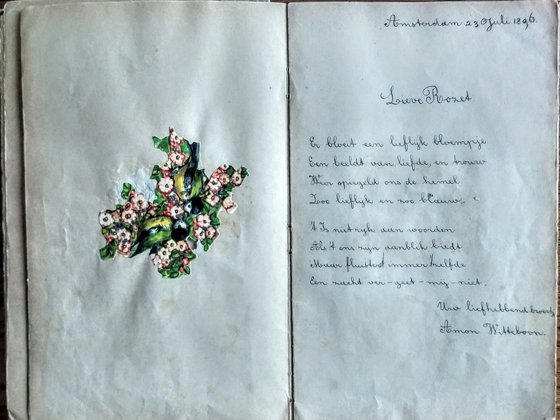 Amsterdam 23 Juli 1896.
Lieve Rozet
Er bloeit een lieflijk bloempje
Een beeldt van liefde, en trouw
Hier spiegeld ons de hemel
Zoo lieflijk en zoo blauw
't Is niet rijk aan woorden
Als 't ons zijn aanblik biedt
Maar fluistert immer 't zelfde
Een zacht ver-geet-mij-niet.
Uw liefhebbend broeder
Amon Witteboon.